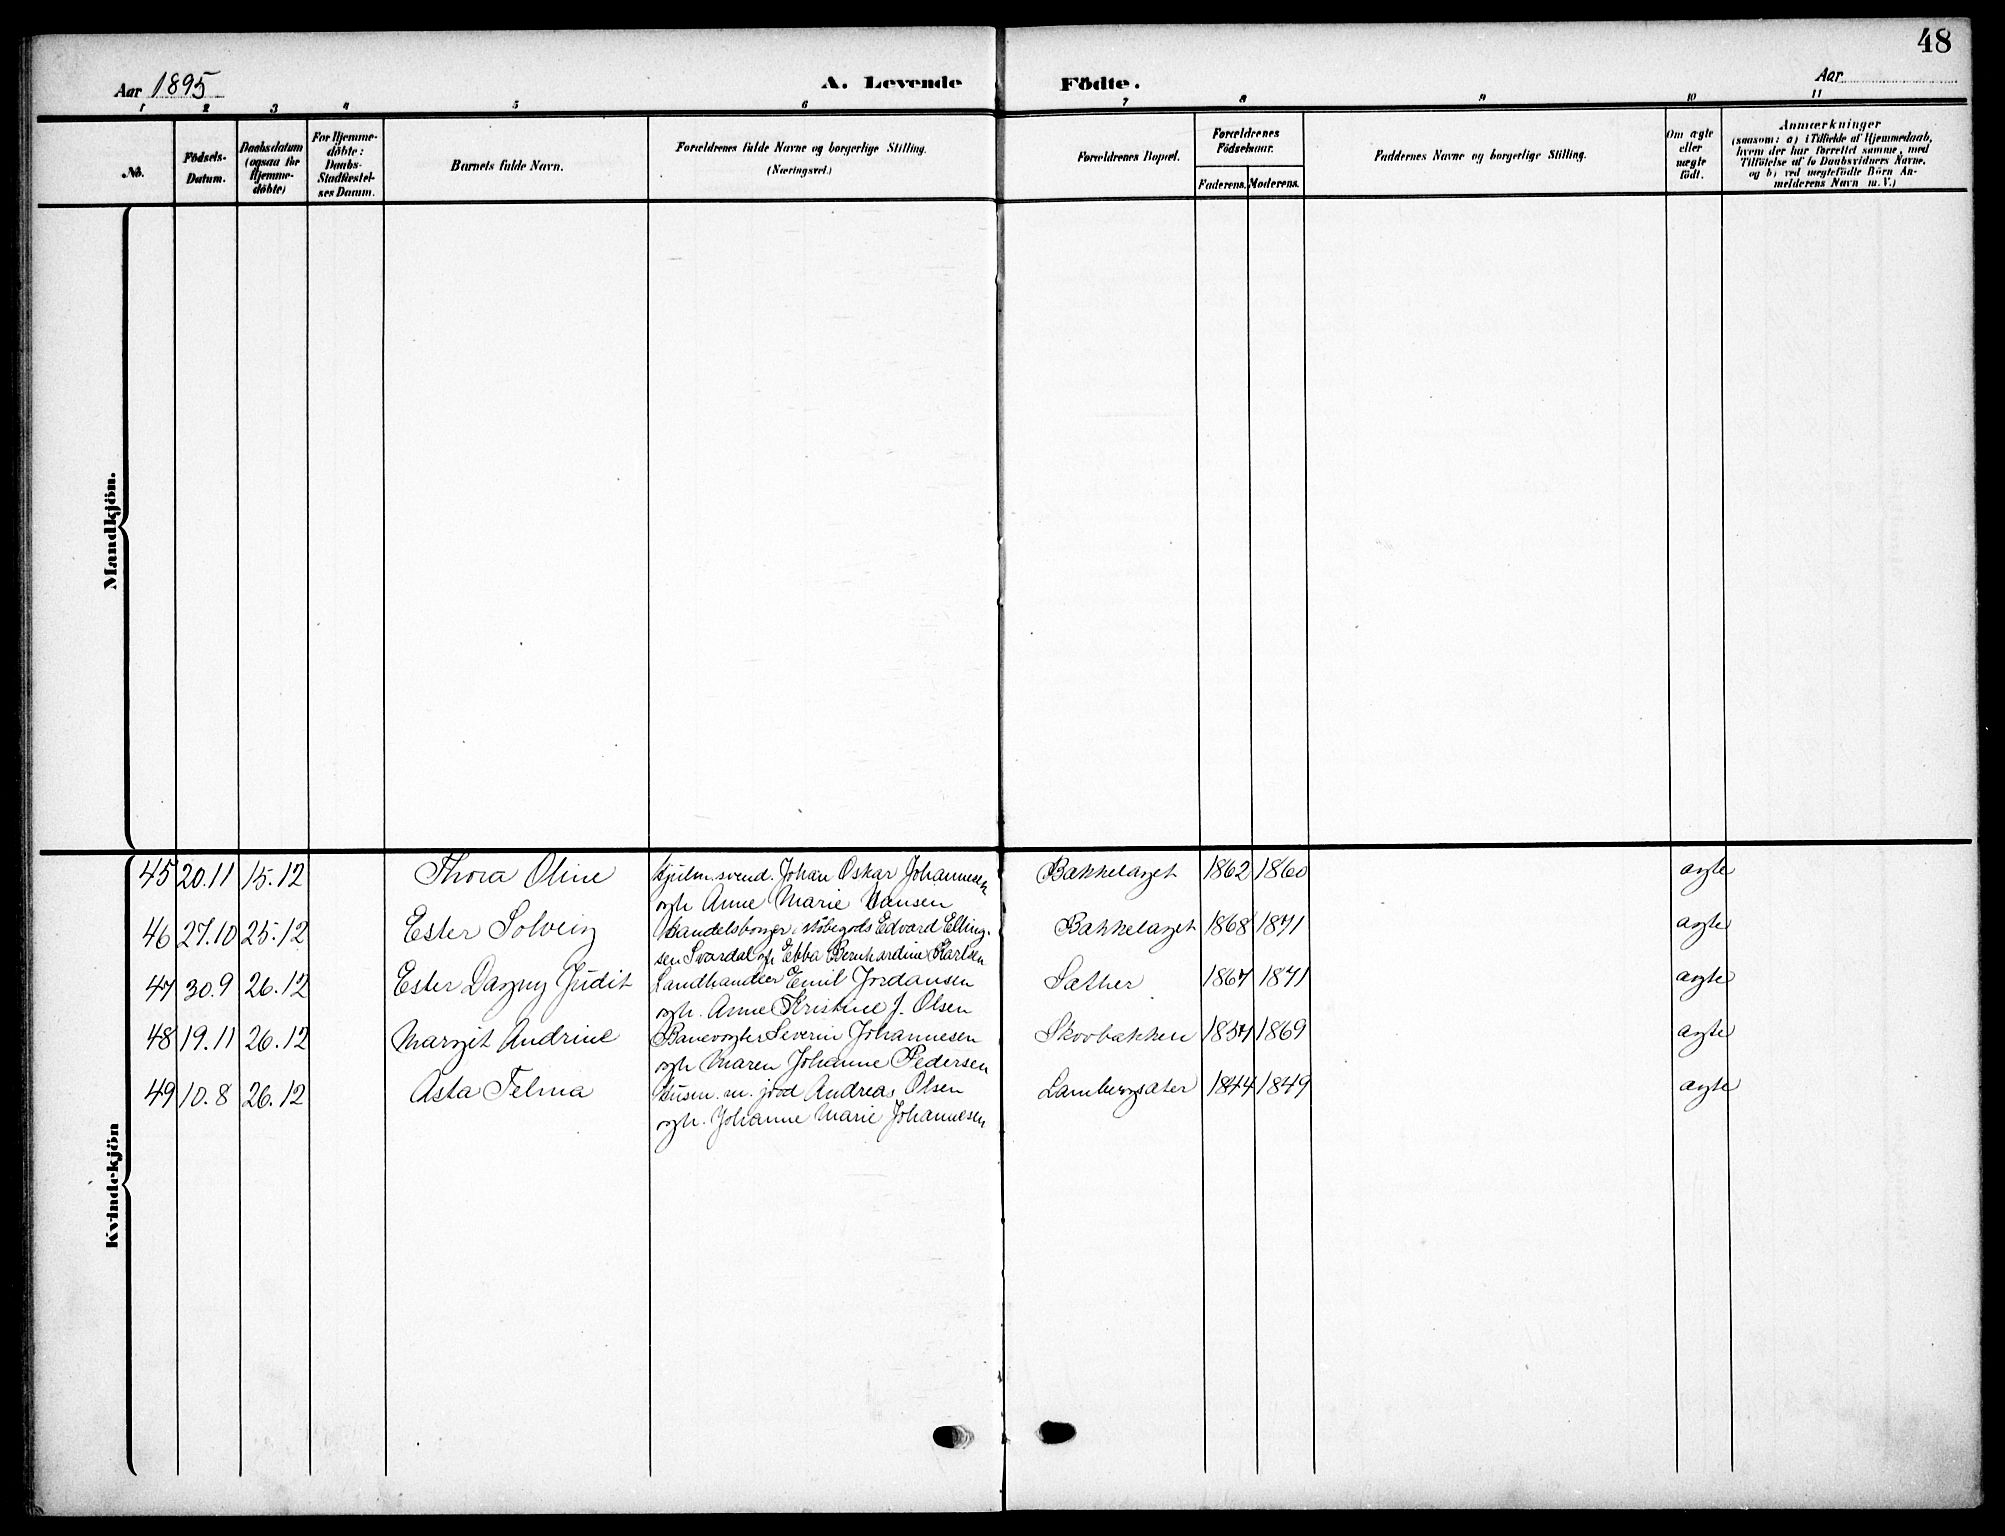 48
Aar 1895
A. Levende Födte.
Aar
1 2 3 4 5 6 7 8 9 10 11
No.
Födsels-Datum.
Daabsdatum (ogsaa for Hjemme-döbte)
For Hjemme-döbte: Daabs-Stadfæstel-ses Datum.
Barnets fulde Navn.
Forældrenes fulde Navne og borgerlige Stilling. (Næringsvei.)
Forældrenes Bopæl.
Forældrenes Födselsaar.
Faderens. Moderens.
Faddernes Navne og borgerlige Stilling.
Om ægte eller uægte födt.
Anmærkninger
(saasom: a) i Tilfælde af Hjemmedaab,
hvem der har forrettet samme, med
Tilföielse af to Daabsvidners Navne.
og b) ved uægtefödte Börn An-
melderens Navn m. V.)
Mandkjön.
Kvindekjön
45 20.11 15.12 Thora Oline Hjulm.svend. Johan Oskar Johannesen Bakkelaget 1862 1860 ægte
og h. Anne Marie Hansen
46 27.10 25.12 Ester Solveig Handelsborger Edvard Elling- Bakkelaget 1868 1871 ægte
sen Svardal og h. Ebba Bernhardine Karlsen
47 30.9 26.12 Ester Dagny Judit Landhandler Emil Jordansen Sæther 1867 1871 ægte
og h. Anne Kristine J. Olsen
48 19.11 26.12 Margit Andrine Banevogter Severin Johannesen Skovbakken 1857 1869 ægte
og h. Maren Johanne Pedersen
49 10.8 26.12 Asta Telma Husm. m. jord Andreas Olsen Lambergsæter 1844 1849 ægte
og h. Johanne Marie Johannesen